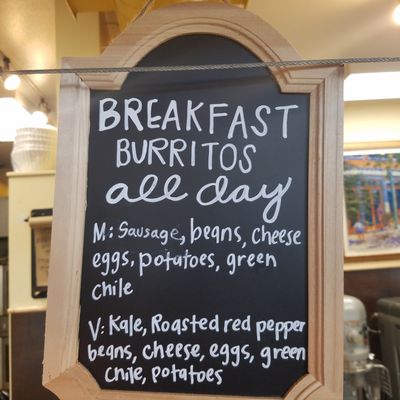 BREAKFAST
BURRITOS
all day
M: Sausage, beans, cheese
eggs, potatoes, green
chile
V: Kale, Roasted red pepper
beans, cheese, eggs, green
chile, potatoes